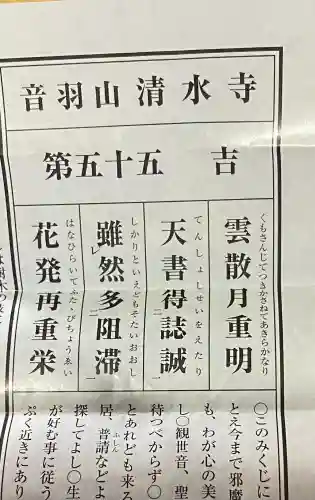 音羽山清水寺
第五十五 吉
くもさんじてつきかさねてあきらかなり
雲散月重明
てんしょしせいをえたり
天書得二誌誠一
しかりといえどもそたいおおし
雖レ然多二阻滞一
はなひらいてふたゝびちょうゑい
花発再重栄
〇このみくじに
とえ今まで邪魔
も、わが心の美
し〇観世音、聖
待つべからず〇
とあれども来る
居、普請などよ
ふしん
探してよし〇生
が好む事に従う
ぷく近きにあり